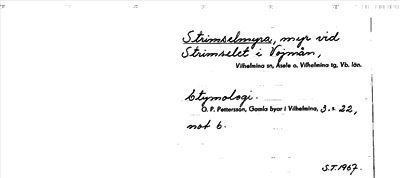 Strimselmyra, myr vid
Strimselet i Vojmån,
Vilhelmina sn, Åsele o. Vilhelmina tg, Vb. län.
Etymologi.
O. P. Pettersson, Gamla byar i Vilhelmina, 3. s. 22,
not 6.
S.T. 1967.